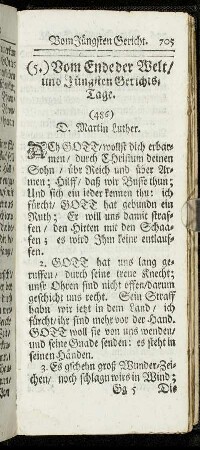 Vom Jüngsten Gericht. 705
(5.) Vom Ende der Welt/
und Jüngsten Gerichts,
Tage.
(486)
D. Martin Luther.
ACh GOTT/ wollst dich erbar-
men/ durch Christum deinen
Sohn / über Reich und über Ar-
men; Hilff/ daß wir Busse thun;
Und sich ein jeder kennen thu: ich
fürcht/ GOTT hat gebunden ein
Ruth; Er will uns damit straf-
fen / den Hirten mit den Schaa-
fen; es wird Ihm keiner entlauf-
fen.
2. GOTT hat uns lang ge-
ruffen/ durch seine treue Knecht;
unsr Ohren sind nicht offen/darum
geschicht uns recht. Sein Straff
habn wir jetzt in dem Land / ich
fürcht/ ihr sind mehr vor der Hand.
GOTT woll sie von uns wenden/
und seine Gnade senden: es steht in
seinen Händen.
3. Es gschehn groß Wunder-Zei-
chen/ noch schlagn wirs in Wind;
Gg 5 Die